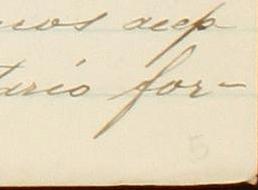 nos dep
tario for-
5